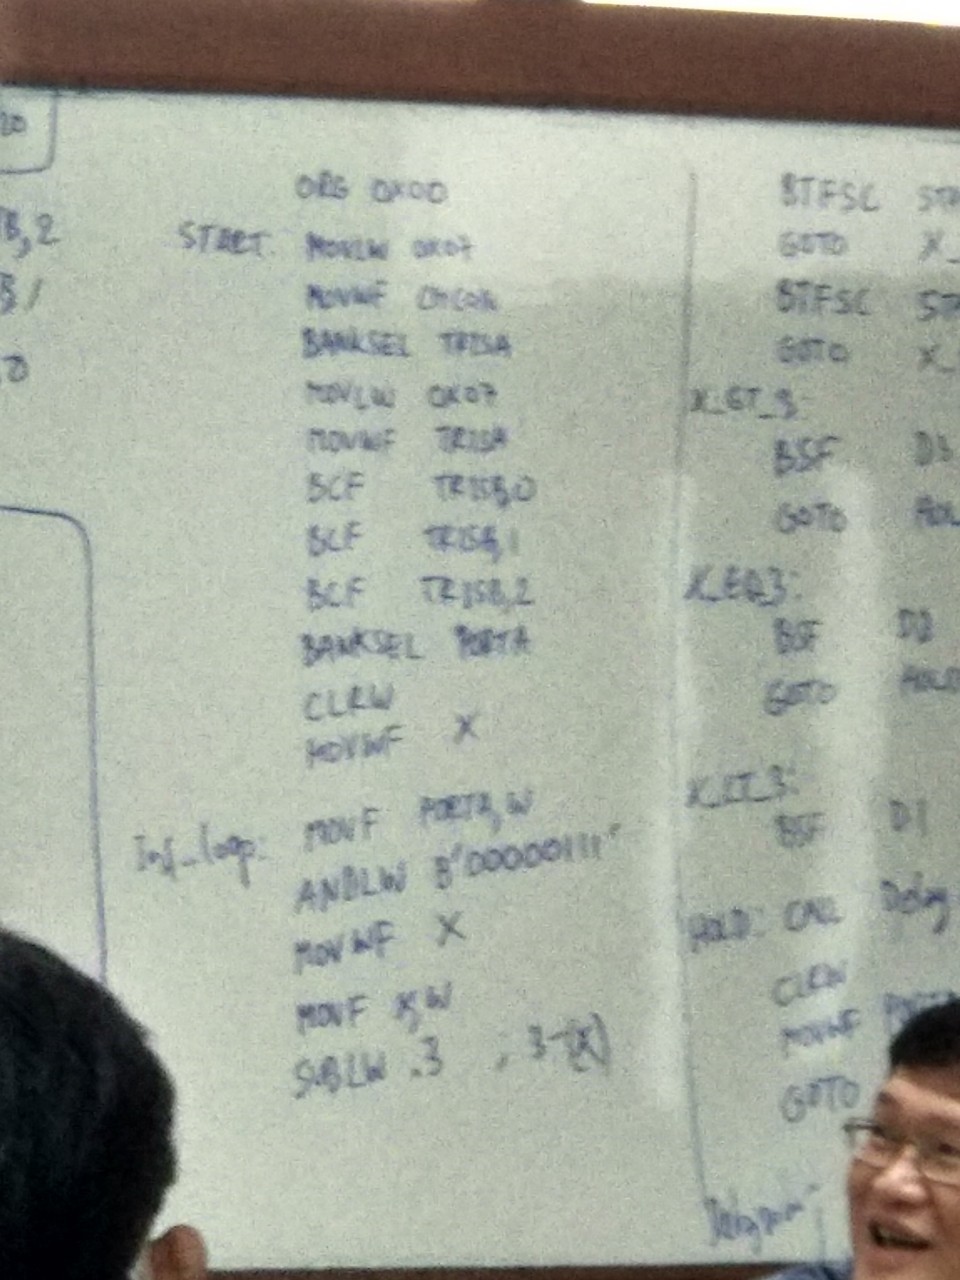 20
B,2
ORG 0X00
START: MOVLW 0X07
MOVWF CMCON
BANKSEL TRISA
MOVLW 0X07
MOVWF TRISA
BCF TRISB,0
BCF TRISB,1
BCF TRISB,2
BANKSEL PORTA
CLRW
MOVWF X
Inf_loop: MOVF PORTA,W
ANDLW B'00000111'
MOVWF X
MOVF X,W
SUBLW .3 ; 3-(X)
BTFSC
GOTO X_
BTFSC
GOTO X_
X_GT_3:
BSF
GOTO
X_EQ3:
BSF
GOTO
X_LT_3:
BSF D1
HOLD: CALL Delay
CLRW
MOVWF
GOTO